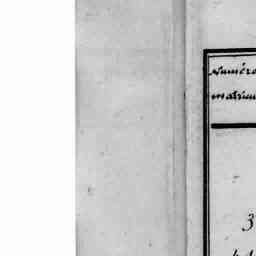 Numéro
matricu
3